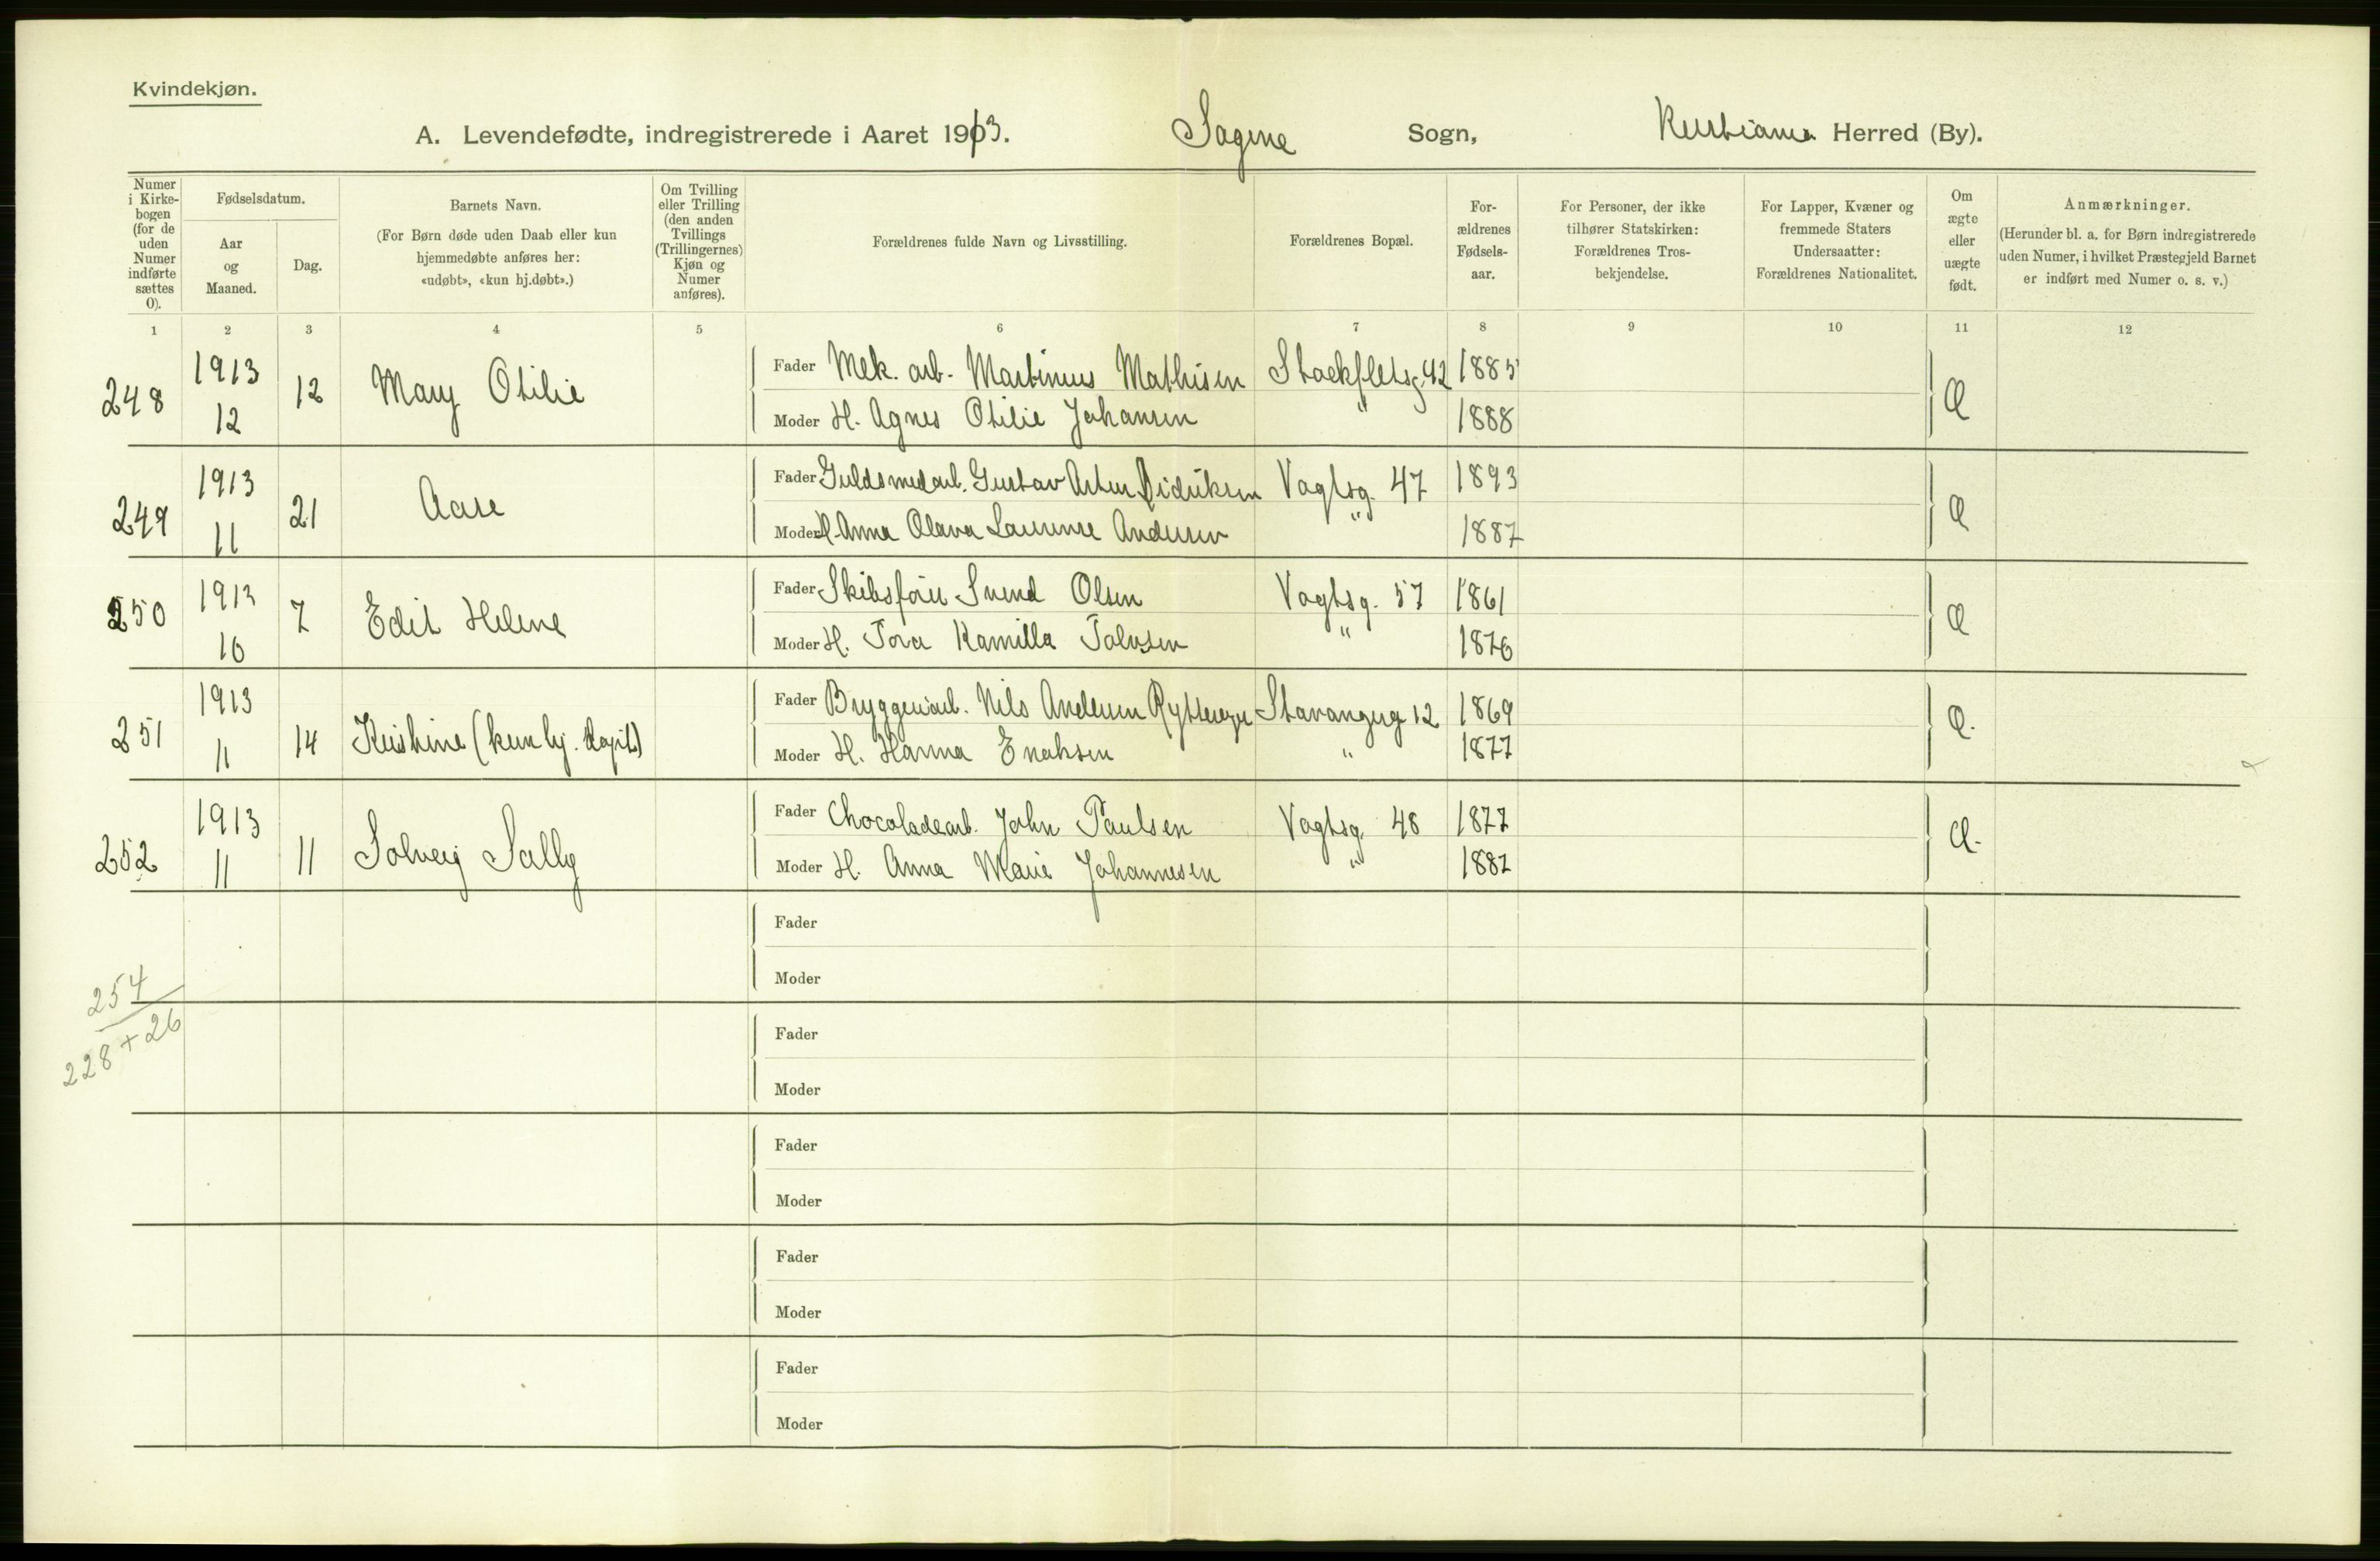 Kvindekjøn.
A. Levendefødte, indregistrerede i Aaret 1913. Sagene Sogn, Kristiania Herred (By).
Numer i Kirkebogen (for de uden Numer indførte sættes 0).
Fødselsdatum.
Aar og Maaned.
Dag.
Barnets Navn.
(For Børn døde uden Daab eller kun
hjemmedøbte anføres her:
«udøbt», «kun hj.døbt».)
Om Tvilling
eller Trilling
(den anden
Tvillings
(Trillingernes)
Kjøn og
Numer
anføres).
Forældrenes fulde Navn og Livsstilling.
Forældrenes Bopæl.
For-
ældrenes
Fødsels-
aar.
For Personer, der ikke
tilhører Statskirken:
Forældrenes Tros-
bekjendelse.
For Lapper, Kvæner og
fremmede Staters
Undersaatter:
Forældrenes Nationalitet.
Om
ægte
eller
uægte
født.
Anmærkninger.
(Herunder bl. a. for Børn indregistrerede
uden Numer, i hvilket Præstegjeld Barnet
er indført med Numer o. s. v.)
1 2 3 4 5 6 7 8 9 10 11 12
248 1913 12 12 Mary Otilie
Fader Mek. arb. Martinius Mathisen Stockfletsg. 42 1885
Moder H. Agnes Otilie Johansen " 1888
249 1913 11 21 Aase
Fader Guldsmedarb. Gustav Artur Didriksen Vogtsg. 47 1893
Moder H. Anna Olava Andersen " 1887
250 1913 10 7 Edit Helene
Fader Skibsfører Svend Olsen Vogtsg. 57 1861
Moder H. Tora Kamilla " 1876
251 1913 11 14 Kristine (kun hj. døpt)
Fader Bryggeriarb. Nils Andersen Stavangerg 12 1869
Moder H. Hanna Enoksen " 1877
252 1913 11 11 Solveig Sally
Fader Chocoladearb. John Paulsen Vogtsg. 48 1877
Moder H. Anna Marie Johannesen " 1882
Fader
Moder
254
228 + 26
Fader
Moder
Fader
Moder
Fader
Moder
Fader
Moder